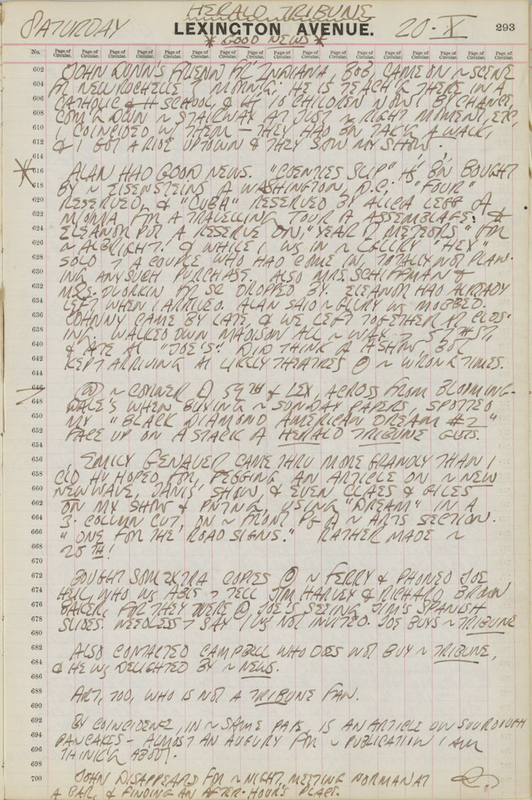 HERALD TRIBUNE
SATURDAY LEXINGTON AVENUE. 20·X 293
* GOOD NEWS *
No. Page of Circular. Page of Circular. Page of Circular. Page of Circular. Page of Circular. Page of Circular. Page of Circular. Page of Circular. Page of Circular. Page of Circular. Page of Circular. Page of Circular.
602 JOHN DUNN'S FRIEND FR. INDIANA, BOB, CAME ON ~ SCENE
604 FR. NEW ROCHELLE ~ MORNG. HE IS TEACHG THERE IN A
606 CATHOLIC H SCHOOL, & W 10 CHILDREN NOW! BY CHANCE,
608 COMG DOWN ~ STAIRWAY AT JUST ~ RIGHT MOMENT, ETC,
610 I COINCIDED W THEM — THEY HAD BN TAKG A WALK,
612 & I GOT A RIDE UPTOWN & THEY SAW MY SHOW.
614
* 616 ALAN HAD GOOD NEWS. "COENTIES SLIP" HS BN BOUGHT
618 BY ~ EISENSTEINS OF WASHINGTON, D.C. "FOUR"
620 RESERVED, & "CUBA" RESERVED BY ALICIA LEGG OF
622 MOMA FOR A TRAVELLING TOUR OF ASSEMBLAGE; &
624 ELEANOR PUT A RESERVE ON "YEAR OF METEORS" FOR
626 ~ ALBRIGHT. & WHILE I WS IN ~ GALLERY "HEY"
628 SOLD ~ A COUPLE WHO HAD COME IN, TOTALLY NOT PLAN-
630 ING ANY SUCH PURCHASE. ALSO MRS. SCHIFFMAN &
632 MRS. DWORKIN DROPPED BY. ELEANOR HAD ALREADY
634 LEFT WHEN I ARRIVED. ALAN SAID ~ GALLERY WS MOBBED.
636 JOHNNY CAME BY LATE, & WE LEFT TOGETHER AT CLOS-
638 ING. WALKED DOWN MADISON ALL ~ WAY
640 & ATE AT "JOE'S" DID THINK OF A SHOW BUT
642 KEPT ARRIVING AT LIKELY THEATRES @ ~ WRONG TIMES.
644
646 @ ~ CORNER OF 59TH & LEX ACROSS FROM BLOOMING-
648 DALE'S WHEN BUYING ~ SUNDAY PAPERS, SPOTTED
650 MY "BLACK DIAMOND AMERICAN DREAM #2"
652 FACE UP ON A STACK OF HERALD TRIBUNE GUTS.
654
656 EMILY GENAUER CAME THRU MORE GRANDLY THAN I
658 CLD HV HOPED FOR, PEGGING AN ARTICLE ON ~ NEW
660 NEW WAVE, JANIS' SHOW, & EVEN CLAES & GILES
662 ON MY SHOW & PNTING, USING "DREAM" IN A
664 3-COLUMN CUT, ON ~ FRONT PG OF ~ ARTS SECTION.
666 "ONE FOR THE ROAD SIGNS." RATHER MADE ~
668 20TH!
670
672 BOUGHT SOM EXTRA COPIES @ ~ FERRY & PHONED JOE
674 HILL, WHO WS ABLE T TELL JIM HARVEY & RICHARD BROWN
676 BAKER, FOR THEY WERE @ JOE'S SEEING JIM'S SPANISH
678 SLIDES. NEEDLESS T SAY I WS NOT INVITED. JOE BUYS ~ TRIBUNE
680
682 ALSO CONTACTED CAMPBELL WHO DOES NOT BUY ~ TRIBUNE,
684 & HE WS DELIGHTED BY ~ NEWS.
686
688 ART, TOO, WHO IS NOT A TRIBUNE FAN.
690
692 BY COINCIDENCE, IN ~ SAME PAPR, IS AN ARTICLE ON SOURDOUGH
694 PANCAKES — ALMOST AN AUGURY FOR ~ PUBLICATION I AM
696 THINKG ABOUT.
698
700 JOHN DISAPPEARD FOR ~ NIGHT, MEETING NORMAN AT
A BAR, & FINDING AN AFTER-HOURS PLACE.